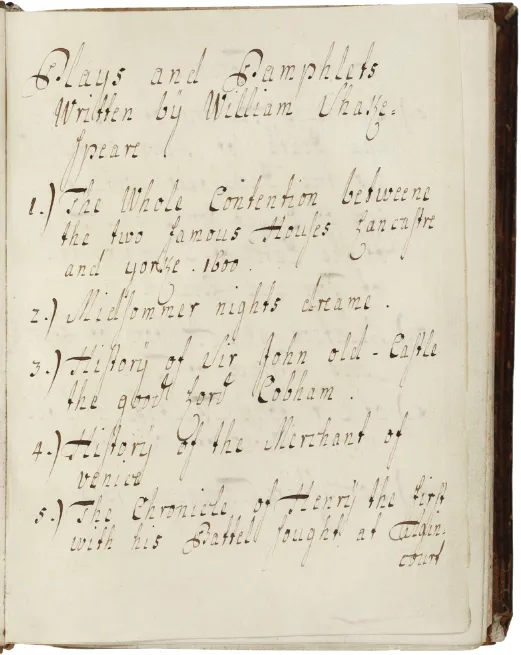 Plays and Pamphlets
Written by William Shake=
speare
1.) The Whole Contention betweene
the two famous Houses Lancastre
and yorke . 1600 .
2.) Midsommer nights dreame .
3.) History of Sir John old-Castle
the good Lord Cobham .
4.) History of the Merchant of
venice
5.) The Chronicle of Henry the first
with his Battell fought at Aigin:
court